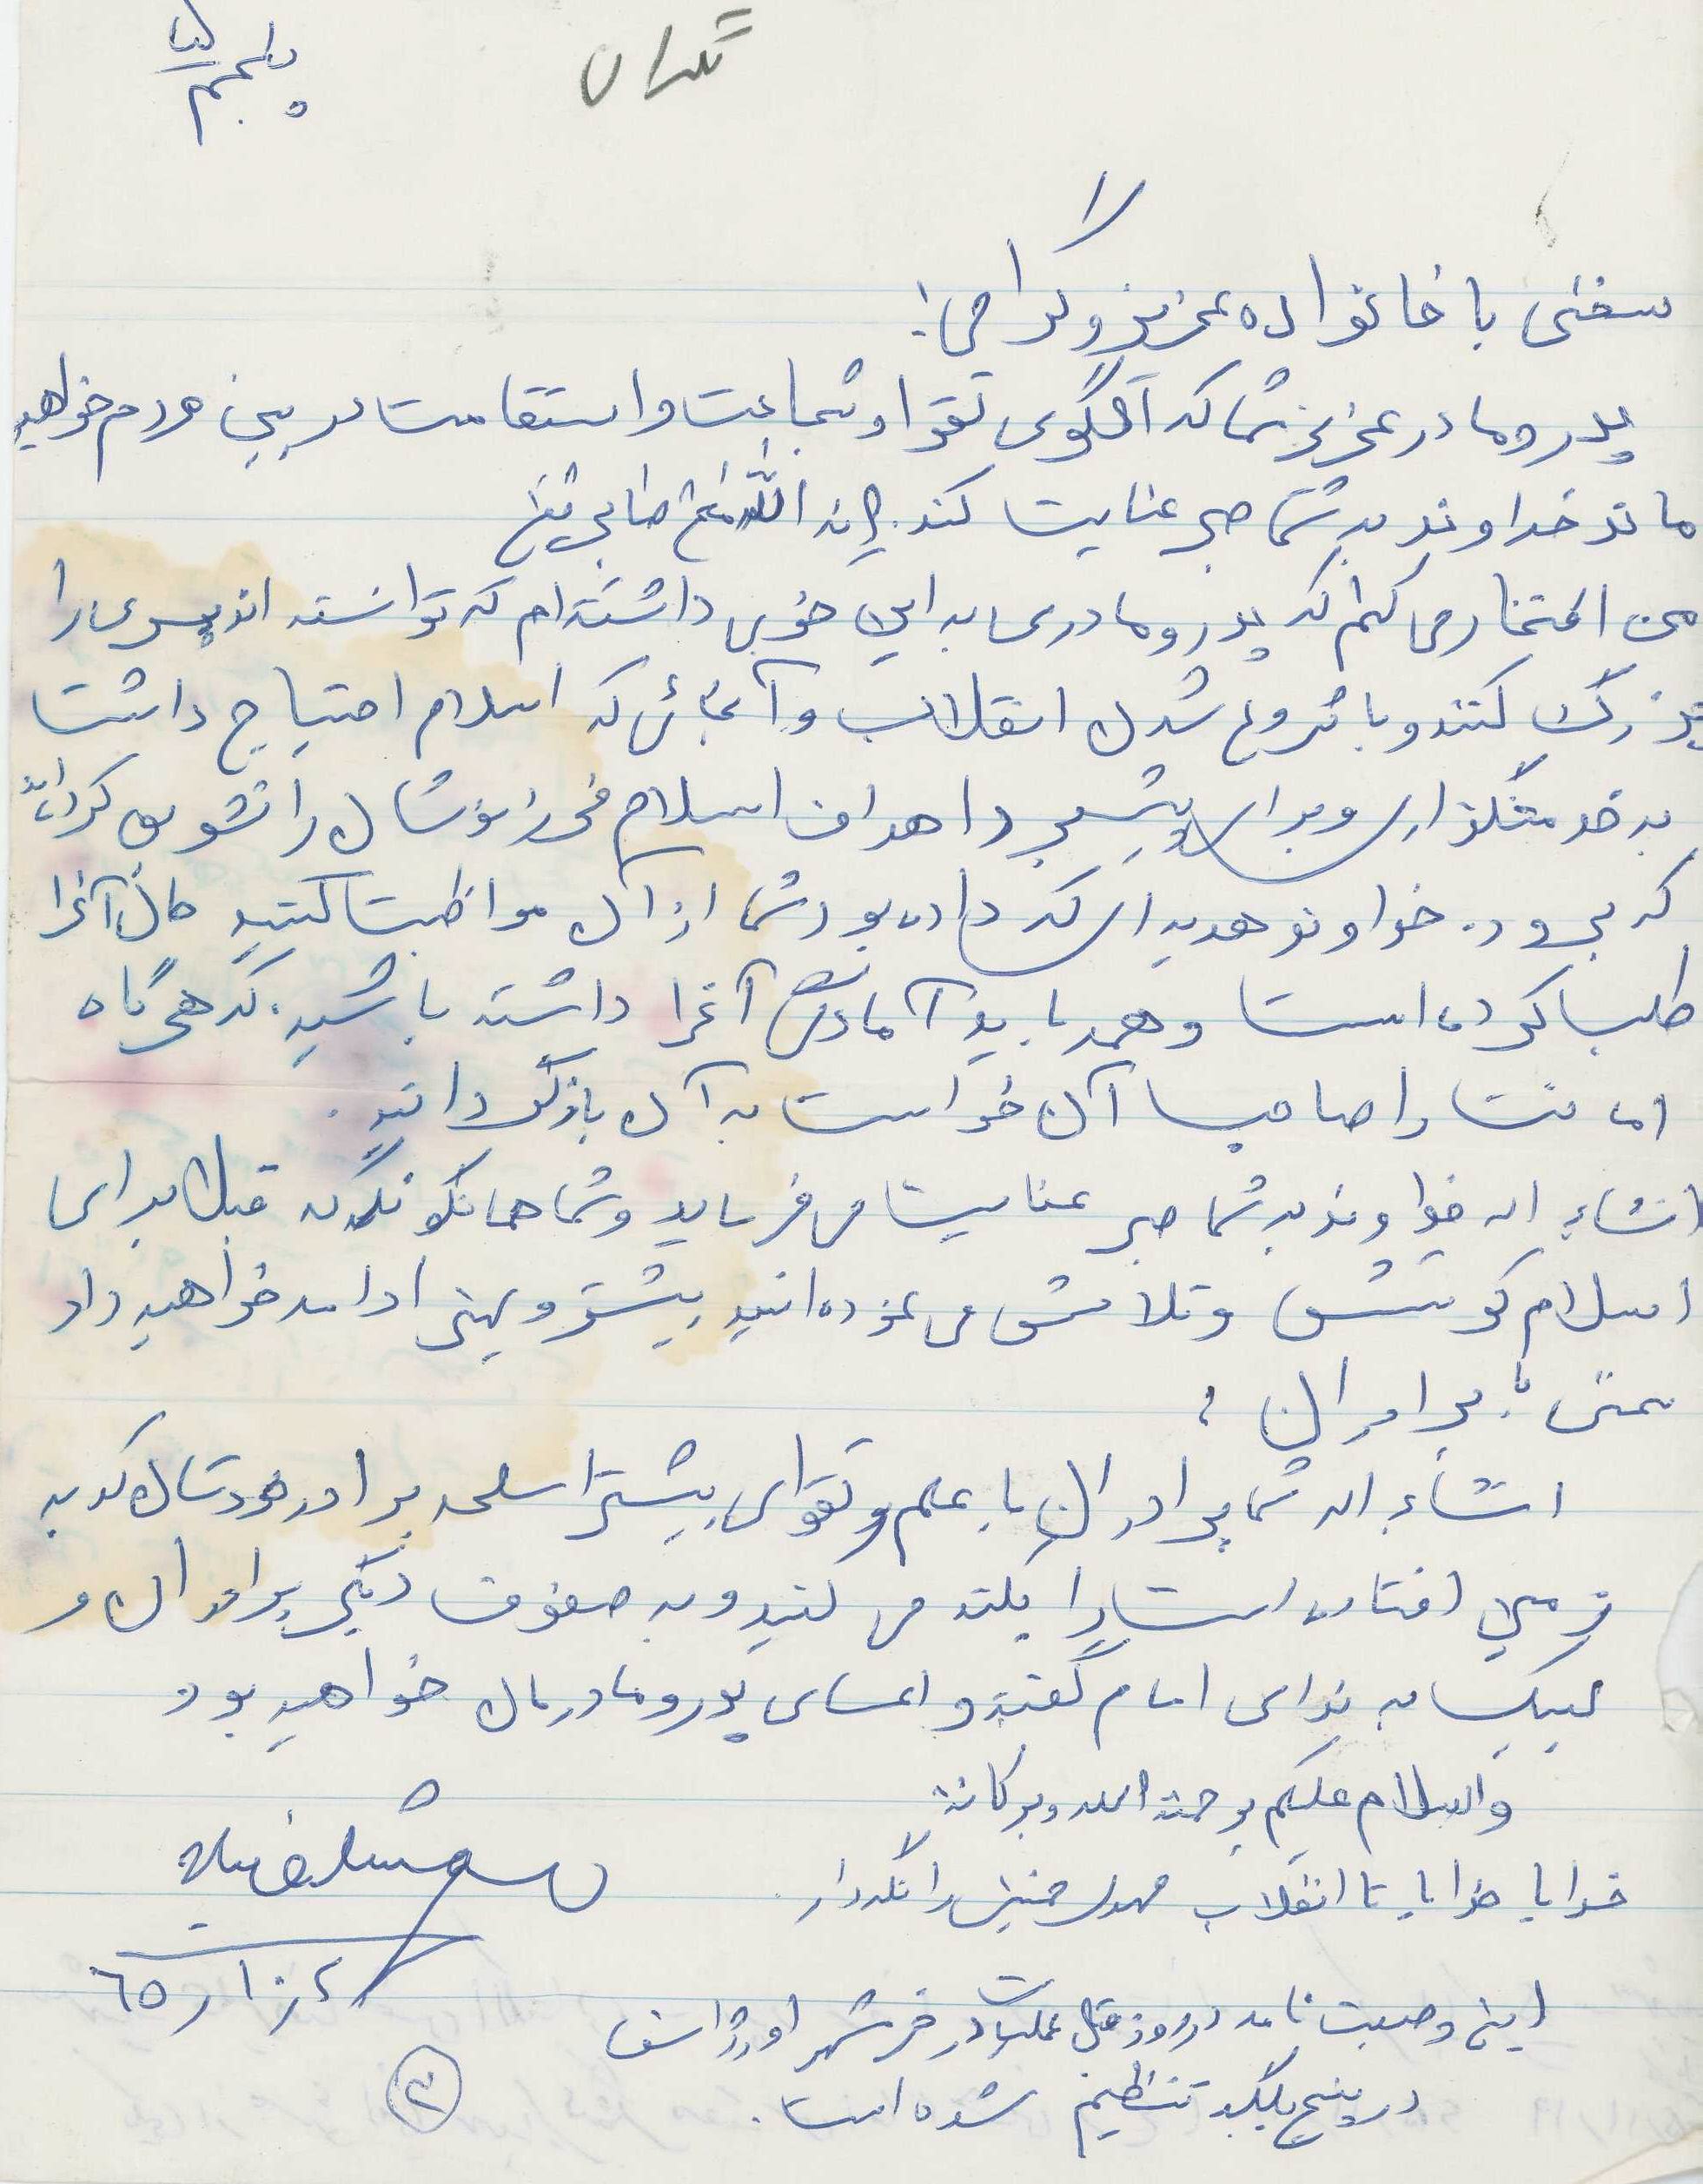 تهران
پنجم
سخنی با خانواده عزیز و گرامی:
پدر و مادر عزیز شما که الگوی تقوا و شجاعت و استقامت در بین مردم خواهید
ماند خداوند به شما صبر عنایت کند. ان الله مع الصابرین
من افتخار می کنم که پدر و مادری به این خوبی داشته ام که توانسته اند پسری را
بزرگ کنند و با شروع شدن انقلاب و آنجائی که اسلام احتیاج داشت
به خدمتگزاری و برای پیشبرد اهداف اسلام فرزندشان را تشویق کرده اند
که برود. خداوند هدیه ای که داده بود شما از آن مواظبت کنید حال آنرا
طلب کرده است و همه باید آمادگی آنرا داشته باشید. که هر گاه
امانت را صاحب آن خواست به آن بازگردانید.
انشاء اله خداوند به شما صبر عنایت می فرماید و شما همانگونه که قبلا برای
اسلام کوشش و تلاش می نموده اید بیشتر و بهتر ادامه خواهید داد
سخنی با برادران:
انشاء اله شما برادران با علم و تقوای بیشتر اسلحه برادر خودتان که به
زمین افتاده است را بلند می کنید و به صفوف دیگر برادران و
لبیک به ندای امام گفته و عصای پدر و مادرمان خواهید بود
والسلام علیکم و رحمة الله و برکاته
خدایا خدایا تا انقلاب مهدی خمینی را نگهدار
٦٥/١٠/٤
این وصیت نامه در روز قبل عملیات در خرمشهر اورژانس
در پنج برگ تنظیم شده است.